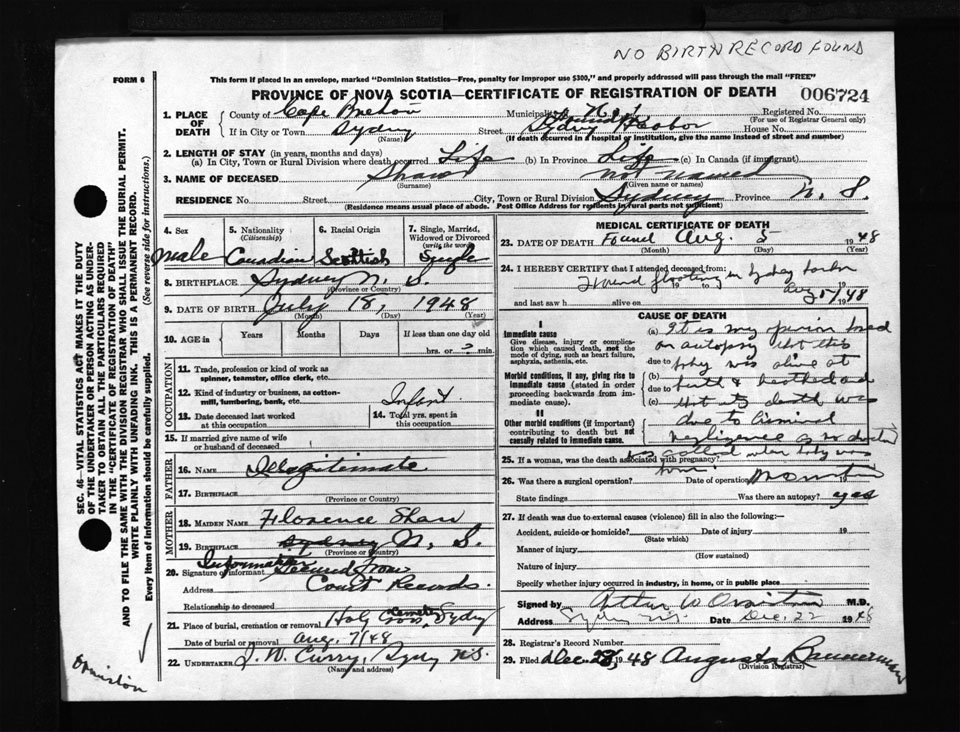 NO BIRTH RECORD FOUND
FORM 6
This form if placed in an envelope, marked "Dominion Statistics—Free, penalty for improper use $300," and properly addressed will pass through the mail "FREE"
PROVINCE OF NOVA SCOTIA—CERTIFICATE OF REGISTRATION OF DEATH 006724
1. PLACE OF DEATH
County of Cape Breton Municipality
Registered No.
(For use of Registrar General only)
If in City or Town Sydney Street Sydney Harbor House No.
(Name) (If death occurred in a hospital or institution, give the name instead of street and number)
2. LENGTH OF STAY (in years, months and days)
(a) In City, Town or Rural Division where death occurred Life (b) In Province Life (c) In Canada (if immigrant)
3. NAME OF DECEASED Shaw not named
(Surname) (Given name or names)
RESIDENCE No. Street City, Town or Rural Division Sydney Province N. S.
(Residence means usual place of abode. Post Office Address for residents in rural parts not sufficient)
4. Sex male
5. Nationality (Citizenship) Canadian
6. Racial Origin Scottish
7. Single, Married, Widowed or Divorced (write the word) Single
8. BIRTHPLACE Sydney N. S.
(Province or Country)
9. DATE OF BIRTH July 18, 1948
(Month) (Day) (Year)
10. AGE in Years Months Days If less than one day
hrs. or ? min.
OCCUPATION
11. Trade, profession or kind of work as spinner, teamster, office clerk, etc.
12. Kind of industry or business, as cotton-mill, lumbering, bank, etc. Infant
13. Date deceased last worked at this occupation
14. Total yrs. spent in this occupation
15. If married give name of wife or husband of deceased
FATHER
16. NAME Illegitimate
17. BIRTHPLACE
(Province or Country)
MOTHER
18. MAIDEN NAME Florence Shaw
19. BIRTHPLACE Sydney N. S.
(Province or Country)
Information secured from
20. Signature of informant
Address Court Records.
Relationship to deceased
21. Place of burial, cremation or removal Holy Cross Cemetery, Sydney
Date of burial or removal Aug. 7/48
22. UNDERTAKER J. W. Curry, Sydney N.S.
(Name and address)
MEDICAL CERTIFICATE OF DEATH
23. DATE OF DEATH Found Aug. 5 1948
(Month) (Day) (Year)
24. I HEREBY CERTIFY that I attended deceased from:
Found floating in Sydney harbor
19 to 19
Aug 5/48
and last saw h alive on 19
CAUSE OF DEATH
I
Immediate cause
Give disease, injury or complication which caused death, not the mode of dying, such as heart failure, asphyxia, asthenia, etc.
Morbid conditions, if any, giving rise to immediate cause (stated in order proceeding backwards from immediate cause).
II
Other morbid conditions (if important) contributing to death but not causally related to immediate cause.
(a) It is my opinion based
on autopsy that this
due to baby was alive at
(b) birth & breathed and
due to
(c) that its death was
due to criminal
negligence as no doctor
was called when baby was
born.
25. If a woman, was the death associated with pregnancy?
26. Was there a surgical operation? Date of operation
State findings Was there an autopsy? yes
27. If death was due to external causes (violence) fill in also the following:—
Accident, suicide or homicide? Date of injury 19
(State which)
Manner of injury
(How sustained)
Nature of injury
Specify whether injury occurred in industry, in home, or in public place
Signed by Arthur W Ormiston M.D.
Address Sydney N.S. Date Dec. 22 1948
28. Registrar's Record Number
29. Filed Dec. 28 1948 Augusta Bannerman
(Division Registrar)
SEC. 46—VITAL STATISTICS ACT MAKES IT THE DUTY
OF THE UNDERTAKER OR PERSON ACTING AS UNDER-
TAKER TO OBTAIN ALL THE PARTICULARS REQUIRED
IN THE "CERTIFICATE OF REGISTRATION OF DEATH"
AND TO FILE THE SAME WITH THE DIVISION REGISTRAR WHO SHALL ISSUE THE BURIAL PERMIT.
WRITE PLAINLY WITH UNFADING INK. THIS IS A PERMANENT RECORD.
Every item of information should be carefully supplied. (See reverse side for instructions.)
Ormiston